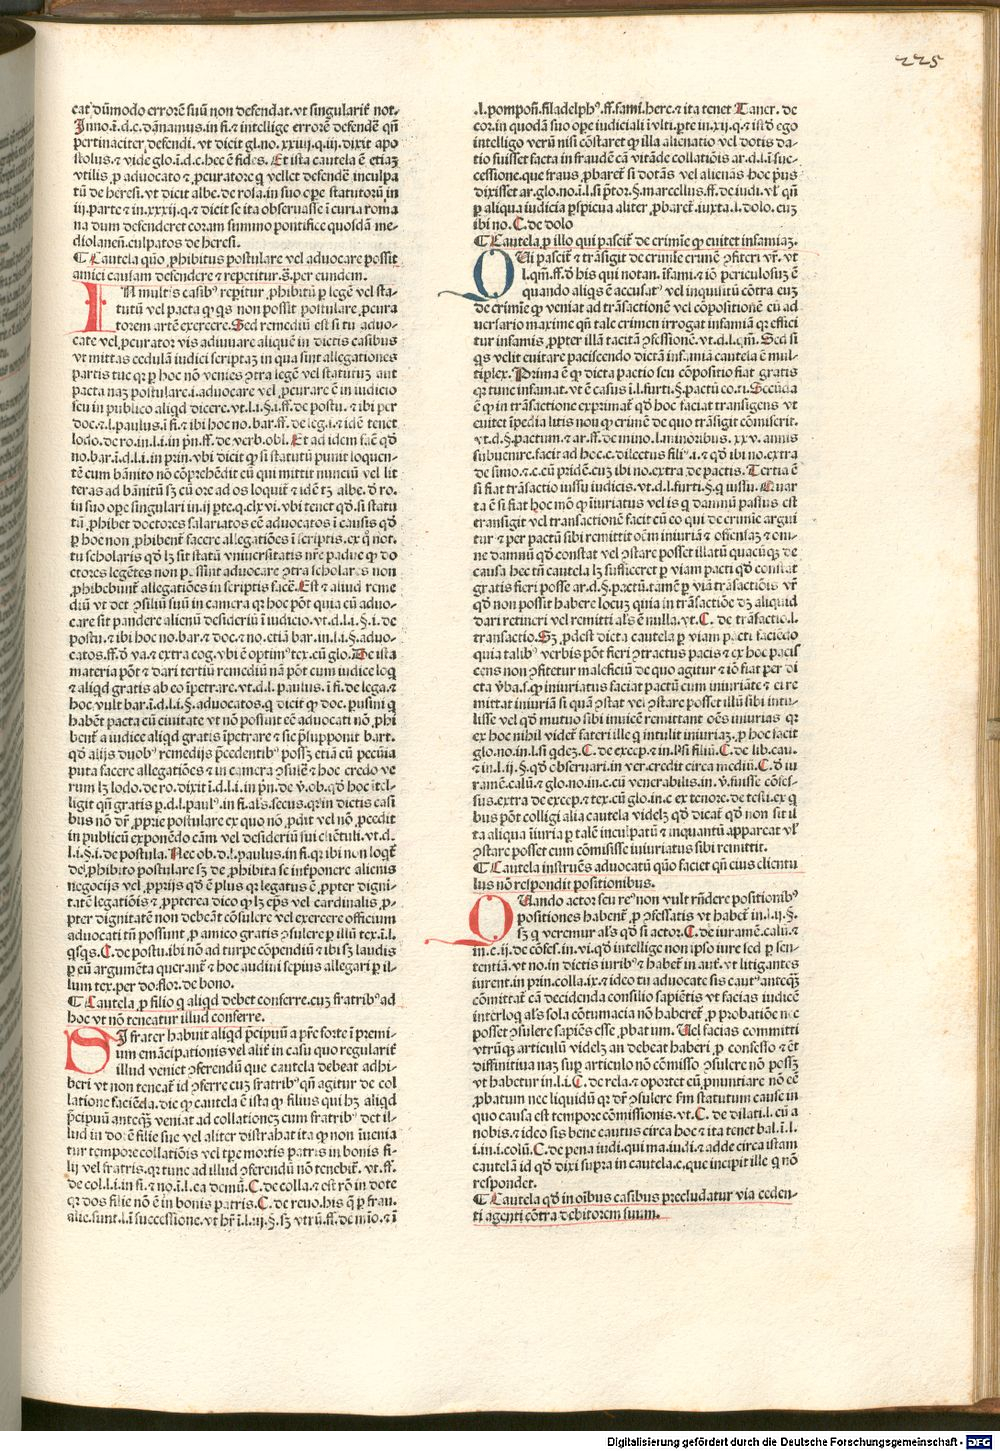 225
cat dūmodo errorē suū non defendat. vt singularit not.
Inno. i. d. c. dānamus. in fi. ⁊ intellige errorē defendē qn̄
pertinaciter defendi. vt dicit gl. no. xxiiij. q. iij. dixit apo
stolus. ⁊ vide glo. i. d. c. hec ē fides. Et ista cautela ē etiaꝫ
vtilis ꝓ aduocato ⁊ ꝓcuratore q̄ vellet defendē inculpa
tū de heresi. vt dicit albe. de rosa. in suo oꝑe statutorū in
iij. parte ⁊ in. xxxij. q. ⁊ dicit se ita obseruasse ī curia roma
na dum defenderet coram summo pontifice quosdā me-
diolanen̄. culpatos de heresi.
¶ Cautela quō ꝓhibitus postulare vel aduocare possit
amici causam defendere ⁊ repetitur. s̄. per eundem.
IN multis casibꝰ repitur ꝓhibitū ꝑ legē vel sta-
tutū vel pacta ꝙ qs non possit postulare ꝓcura
torem artē exercere. Sed remediū est si tu aduo-
cate vel ꝓcurator vis adiuuare aliquē in dictis casibus
vt mittas cedulā iudici scriptaꝫ in qua sint allegationes
partis tue qꝛ ꝑ hoc nō venies ↄtra legē vel statutuꝫ aut
pacta naꝫ postulare. i. aduocare vel ꝓcurare ē in iudicio
seu in publico aliqd dicere. vt. l. i. §. i. ff. de postu. ⁊ ibi per
doc. ⁊. l. paulus. ī fi. ⁊ ibi hoc no. bar. ff. de leg. i. ⁊ idē tenet
lodo. de ro. in. l. i. in pn̄. ff. de verb. obl. Et ad idem facē qđ
no. bar. ī. d. l. i. in prin. vbi dicit ꝙ si statutū punit loquen-
tē cum bānito nō cōprehēdit eū qui mittit nunciū vel lit
teras ad bānitū sꝫ cū ore ad os loquit̄ ⁊ idē tꝫ albe. đ ro.
in suo oꝑe singulari in. ij ꝑte. q. clxvi. vbi tenet qđ. si statu
tū ꝓhibet doctores salariatos eē aduocatos ī causis qđ
ꝑ hoc non ꝓhibent̄ facere allegatiōes ī scriptis. ex q̄ not.
tu scholaris qđ lꝫ sit statū vniuersitatis nr̄e padue ꝙ do
ctores legētes non possūt aduocare ↄtra scholares non
ꝓhibebunt̄ allegatiōes in scriptis facē. Est ⁊ aliud reme
diū vt det ↄsiliū suū in camera qꝛ hoc pōt quia eū aduo-
care sit pandere alienū desideriū ī iudicio. vt. d. l. i. §. i. de
postu. ⁊ ibi hoc no. bar. ⁊ doc. ⁊ no. etiā bar. in. l. i. §. aduo-
catos. ff. đ va. ⁊ extra cog. vbi ē optimꝰ tex. cū glo. De ista
materia pōt ⁊ dari tertiū remediū nā pōt cum iudice loq̄
⁊ aliqd gratis ab eo īpetrare. vt. d. l. paulus. ī fi. de lega. ⁊
hoc vult bar. ī. d. l. i. §. aduocatos. q̄ dicit ꝙ doc. pusini q̄
habēt pacta cū ciuitate vt nō possint eē aduocati nō ꝓhi
bent̄ a iudice aliqd gratis īpetrare ⁊ sic p̄supponit bart.
qđ alijs duobꝰ remedijs p̄cedentibꝰ possꝫ etiā cū pecūia
puta facere allegatiōes ⁊ in camera ↄsulē ⁊ hoc credo ve
rum lꝫ lodo. de ro. dixit ī. d. l. i. in pn̄. de v̄. ob. qđ hoc ītel-
ligit qn̄ gratis ꝑ. d. l. paulꝰ. in fi. als̄. secus. qꝛ in dictis casi
bus nō dr̄ ꝓprie postulare ex quo nō ꝓdit vel nō ꝓcedit
in publicū exponēdo cām vel desideriū sui cliētuli. vt. d.
l. i. §. i. de postula. Nec ob. d. l. paulus. in fi. qꝛ ibi non loqt̄
de ꝓhibito postulare sꝫ de ꝓhibita se inťponere alienis
negocijs vel ꝓprijs qđ ē plus qꝛ legatus ē ꝓpter digni-
tatē legatiōis ⁊ ꝓpterea dico ꝙ lꝫ ep̄s vel cardinalis ꝓ-
pter dignitatē non debeāt cōsulere vel exercere officium
aduocati tn̄ possunt ꝓ amico gratis ↄsulere ꝑ illū tex. ī. l.
qsqs. C. de postu. ibi nō ad turpe cōpendiū ⁊ ibi sꝫ laudis
ꝑ eū argumēta querant̄ ⁊ hoc audiui sepius allegari ꝑ il-
lum tex. per do. flor. de bono.
¶ Cautela ꝓ filio q̄ aliqd debet conferre. cuꝫ fratribꝰ ad
hoc vt nō teneatur illud conferre.
SI frater habuit aliqd p̄cipuū a pr̄e forte ī premi-
um emācipationis vel alit̄ in casu quo regularit̄
illud veniet ↄferendū que cautela debeat adhi-
beri vt non teneat̄ id ↄferre cuꝫ fratribꝰ qn̄ agitur de col
latione faciēda. dic ꝙ cautela ē ista ꝙ filius qui hꝫ aliqd
p̄cipuū anteqꝫ veniat ad collationeꝫ cum fratribꝰ det il-
lud in dotē filie sue vel aliter distrahat ita ꝙ non īuenia
tur tempore collatiōis vel tꝑe mortis patris in bonis fi-
lij vel fratris. qꝛ tunc ad illud ↄferendū nō tenebit̄. vt. ff.
de col. l. i. in fi. ⁊ no. ī. l. ea demū. C. de colla. ⁊ est rō in dote
qꝛ dos filie nō ē in bonis patris. C. de reuo. his q̄ ꝑ frau.
alie. sunt. l. ī successione. vt hr̄ ī. l. iij. §. sꝫ vtrū. ff. de mīo. ⁊ ī
. l. pompon̄. filadelphꝰ. ff. fami. herc. ⁊ ita tenet Tancr. de
cor. in quodā suo oꝑe iudiciali ī vlti. ꝑte. in. xij. q. ⁊ illđ ego
intelligo verū nisi cōstaret ꝙ illa alienatio vel dotis da-
tio fuisset facta in fraudē cā vitāde collatiōis ar. d. l. ī suc-
cessione. que fraus ꝓbaret̄ si dotās vel alienās hoc pͥus
dixisset ar. glo. no. ī. l. si p̄tor. §. marcellus. ff. de iudi. vl̄ qn̄
ꝑ aliqua iudicia ꝑspicua aliter ꝓbaret̄. iuxta. l. dolo. cuꝫ
ibi no. C. de dolo
¶ Cautela ꝓ illo qui pascit̄ de crimīe ꝙ euitet infamiaꝫ.
QUi pascit̄ ⁊ trāsigit de crimīe crimē ↄfiteri vr̄. vt
l. qm̄. ff. đ his qui notan. īfami. ⁊ iō periculosuꝫ ē
quando aliqs ē accusatꝰ vel inquisitū cōtra euꝫ
de crimīe ꝙ veniat ad trāsactionē vel cōpositionē cū ad
uersario maxime qn̄ tale crimen irrogat infamiā qꝛ effici
tur infamis ꝓpter illā tacitā ↄfessionē. vt. d. l. qm̄. Sed si
qs velit euitare paciscendo dictā infamiā cautela ē mul-
tiplex. Prima ē ꝙ dicta pactio seu cōpositio fiat gratis
qꝛ tunc infamat. vt ē casus ī. l. furti. §. pactū eo. ti. Secūda
ē ꝙ in trāsactione exprimat̄ qđ hoc faciat transigens vt
euitet īpedia litis non ꝙ crimē de quo trāsigit cōmiserit.
vt. d. §. pactum. ⁊ ar. ff. de mino. l. minoribus. xxv. annis
subuenire. facit ad hoc. c. dilectus filiꝰ. i. ⁊ qđ ibi no. extra
de simo. ⁊. c. cū pridē. cuꝫ ibi no. extra de pactis. Tertia ē
si fiat trāsactio iussu iudicis. vt. d. l. furti. §. q̄ iussu. Quar
ta ē si fiat hoc mō ꝙ īiuriatus vel is q̄ damnū passus est
transigit vel transactionē facit cū eo qui de crimīe argui
tur ⁊ per pactū sibi remittit oēm iniuriā ⁊ offensaꝫ ⁊ om-
ne damnū qđ constat vel ↄstare posset illatū quacūqꝫ de
causa hec tn̄ cautela lꝫ sufficeret ꝑ viam pacti qđ constat
gratis fieri posse ar. d. §. pactū. tamē ꝑ viā trāsactiōis vr̄
qđ non possit habere locuꝫ quia in trāsactiōe dꝫ aliquid
dari retineri vel remitti als̄ ē nulla. vt. C. de trāsactio. l.
transactio. Sꝫ ꝓdest dicta cautela ꝑ viam pacti faciēdo
quia talibꝰ verbis pōt fieri ↄtractus pacis ⁊ ex hoc pacis
cens non ↄfitetur maleficiū de quo agitur ⁊ iō fiat per di
cta v̄ba. s. ꝙ iniuriatus faciat pactū cum iniuriāte ⁊ ei re
mittat iniuriā si quā ↄstat vel ↄstare posset illū sibi intu-
lisse vel qđ mutuo sibi inuicē remittant oēs iniurias qꝛ
ex hoc nihil videt̄ fateri ille q̄ intulit iniuriaꝫ. ꝓ hoc facit
glo. no. in. l. si qdeꝫ. C. de excep. ⁊ in. l. si filiū. C. de lib. cau.
⁊ in. l. ij. §. qđ obseruari. in ver. credit circa mediū. C. đ iu
ramē. calū. ⁊ glo. no. in. c. cū venerabilis. in v̄. fuisse cōfes-
sus. extra de excep. ⁊ tex. cū glo. in. c ex tenore. de testi. ex q̄
bus pōt colligi alia cautela videlꝫ qđ dicat̄ qđ non sit il
ta aliqua īiuria ꝑ talē inculpatū ⁊ inquantū appareat vl̄
ↄstare posset eum cōmisisse iniuriatus sibi remittit.
¶ Cautela instruēs aduocatū quō faciet qn̄ eius clientu
lus nō respondit positionibus.
QUando actor seu reꝰ non vult rn̄dere positionibꝰ
positiones habent̄ ꝓ ↄfessatis vt habet̄ in. l. ij. §.
sꝫ q̄ veremur als̄ qđ si actor. C. de iuramē. calū. ⁊
in. c. ij. de cōfes. in. vi. qđ intellige non ipso iure sed ꝑ sen-
tentiā. vt no. in dictis iuribꝰ ⁊ habet̄ in aut̄. vt litigantes
iurent. in prin. colla. ix. ⁊ ideo tu aduocate sis cautꝰ anteqꝫ
cōmittat̄ cā decidenda consilio sapiētis vt facias iudicē
interloq̄ als̄ sola cōtumacia nō haberet̄ ꝓ probatiōe nec
posset ↄsulere sapiēs esse ꝓbatum. Uel facias committi
vtrūqꝫ articulū videlꝫ an debeat haberi ꝓ confesso ⁊ ēt
diffinitiua naꝫ suꝑ articulo nō cōmisso ↄsulere nō possꝫ
vt habetur in. l. i. C. de rela. ⁊ oportet eū ꝓnuntiare nō eē
ꝓbatum nec liquidū qꝛ dr̄ ↄsulere s̄m statutum cause in
quo causa est tempore cōmissionis. vt. C. de dilati. l. cū a
nobis. ⁊ ideo sis bene cautus circa hoc ⁊ ita tenet bal. ī. l.
i. in. i. colū. C. de pena iudi. qui ma. iudi. ⁊ adde circa istam
cautelā id qđ dixi supra in cautela. c. que incipit ille q̄ nō
respondet.
¶ Cautela qđ in oībus casibus precludatur via ceden-
ti agenti cōtra debitorem suum.
Digitalisierung gefördert durch die Deutsche Forschungsgemeinschaft - DFG